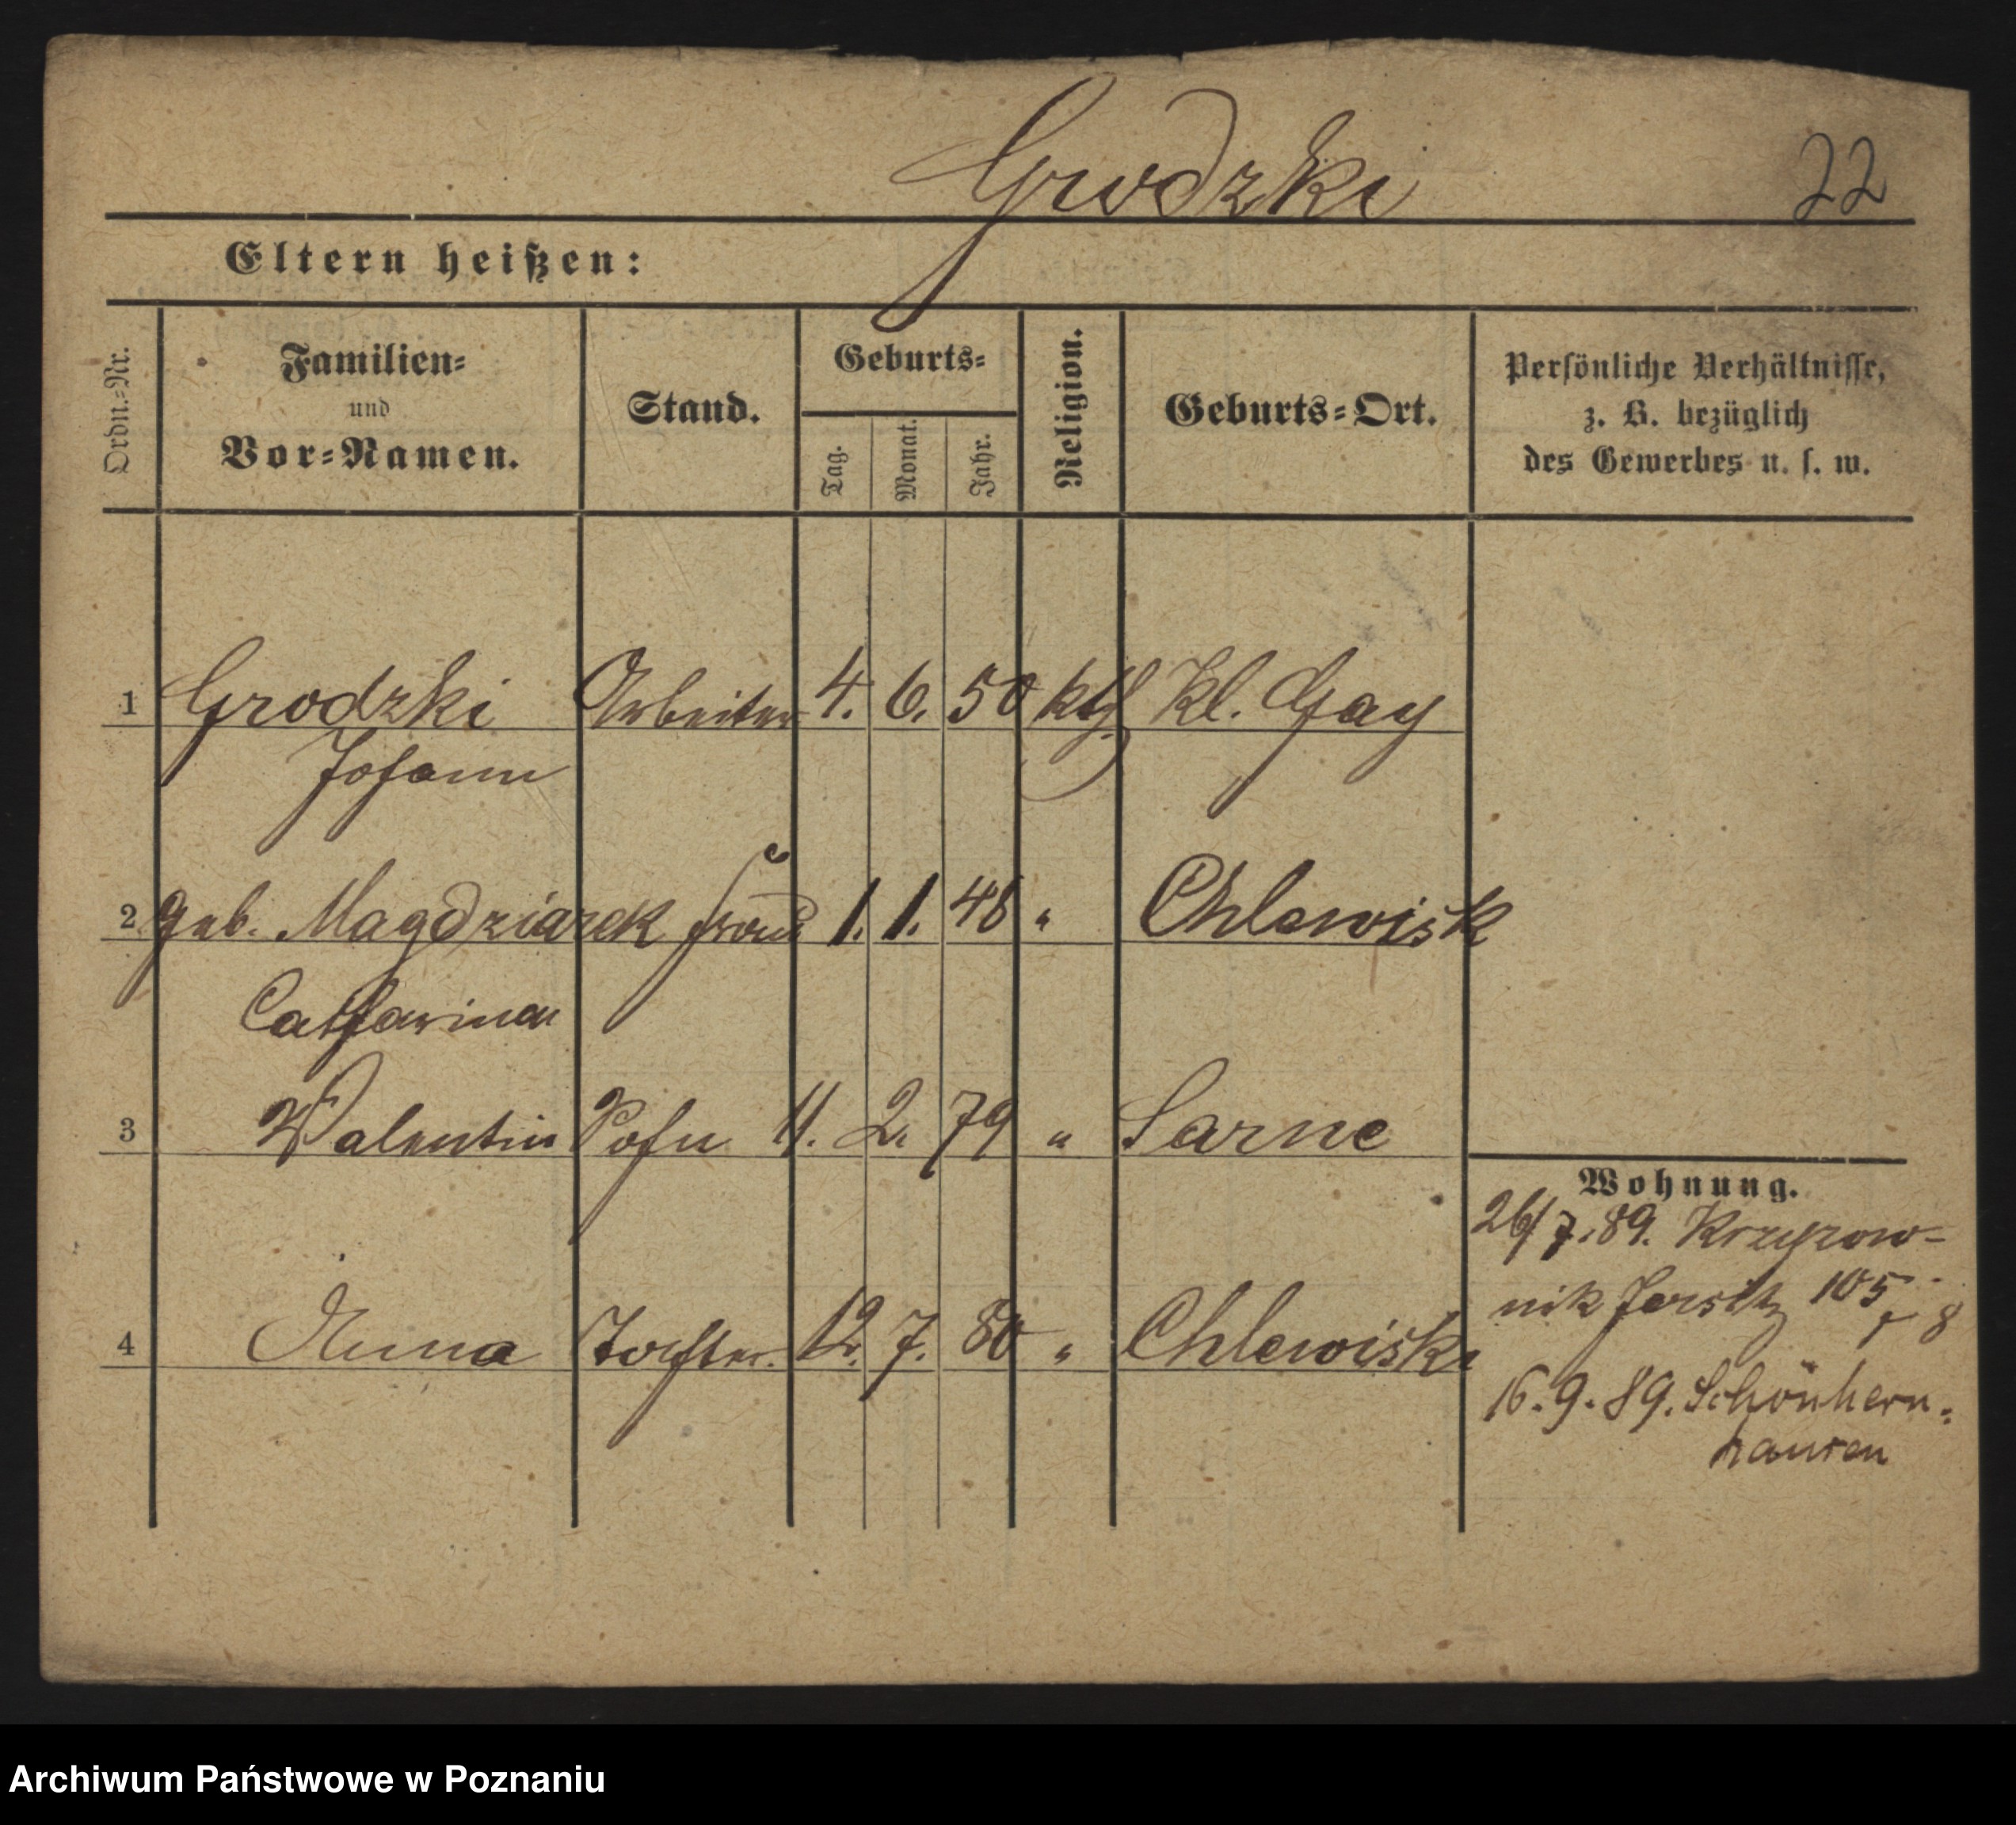 Grodzki
22
Eltern heißen:
Ordn.-Nr.
Familien-
und
Vor-Namen.
Stand.
Geburts-
Tag.
Monat.
Jahr.
Religion.
Geburts-Ort.
Persönliche Verhältnisse,
z. B. bezüglich
des Gewerbes u. s. w.
1 Grodzki Arbeiter 4. 6. 50 kth. Kl. Gay
Johann
2 geb. Magdziarek Frau 1. 1. 48 " Chlewisk
Catharina
3 Valentin Sohn 11. 2. 79 " Sarne
4 Anna Tochter. 12. 7. 80 " Chlewisk
Wohnung.
26/7.89.
nik Jersitz 105
8
16.9.89. Schönherrn-
hausen
Archiwum Państwowe w Poznaniu